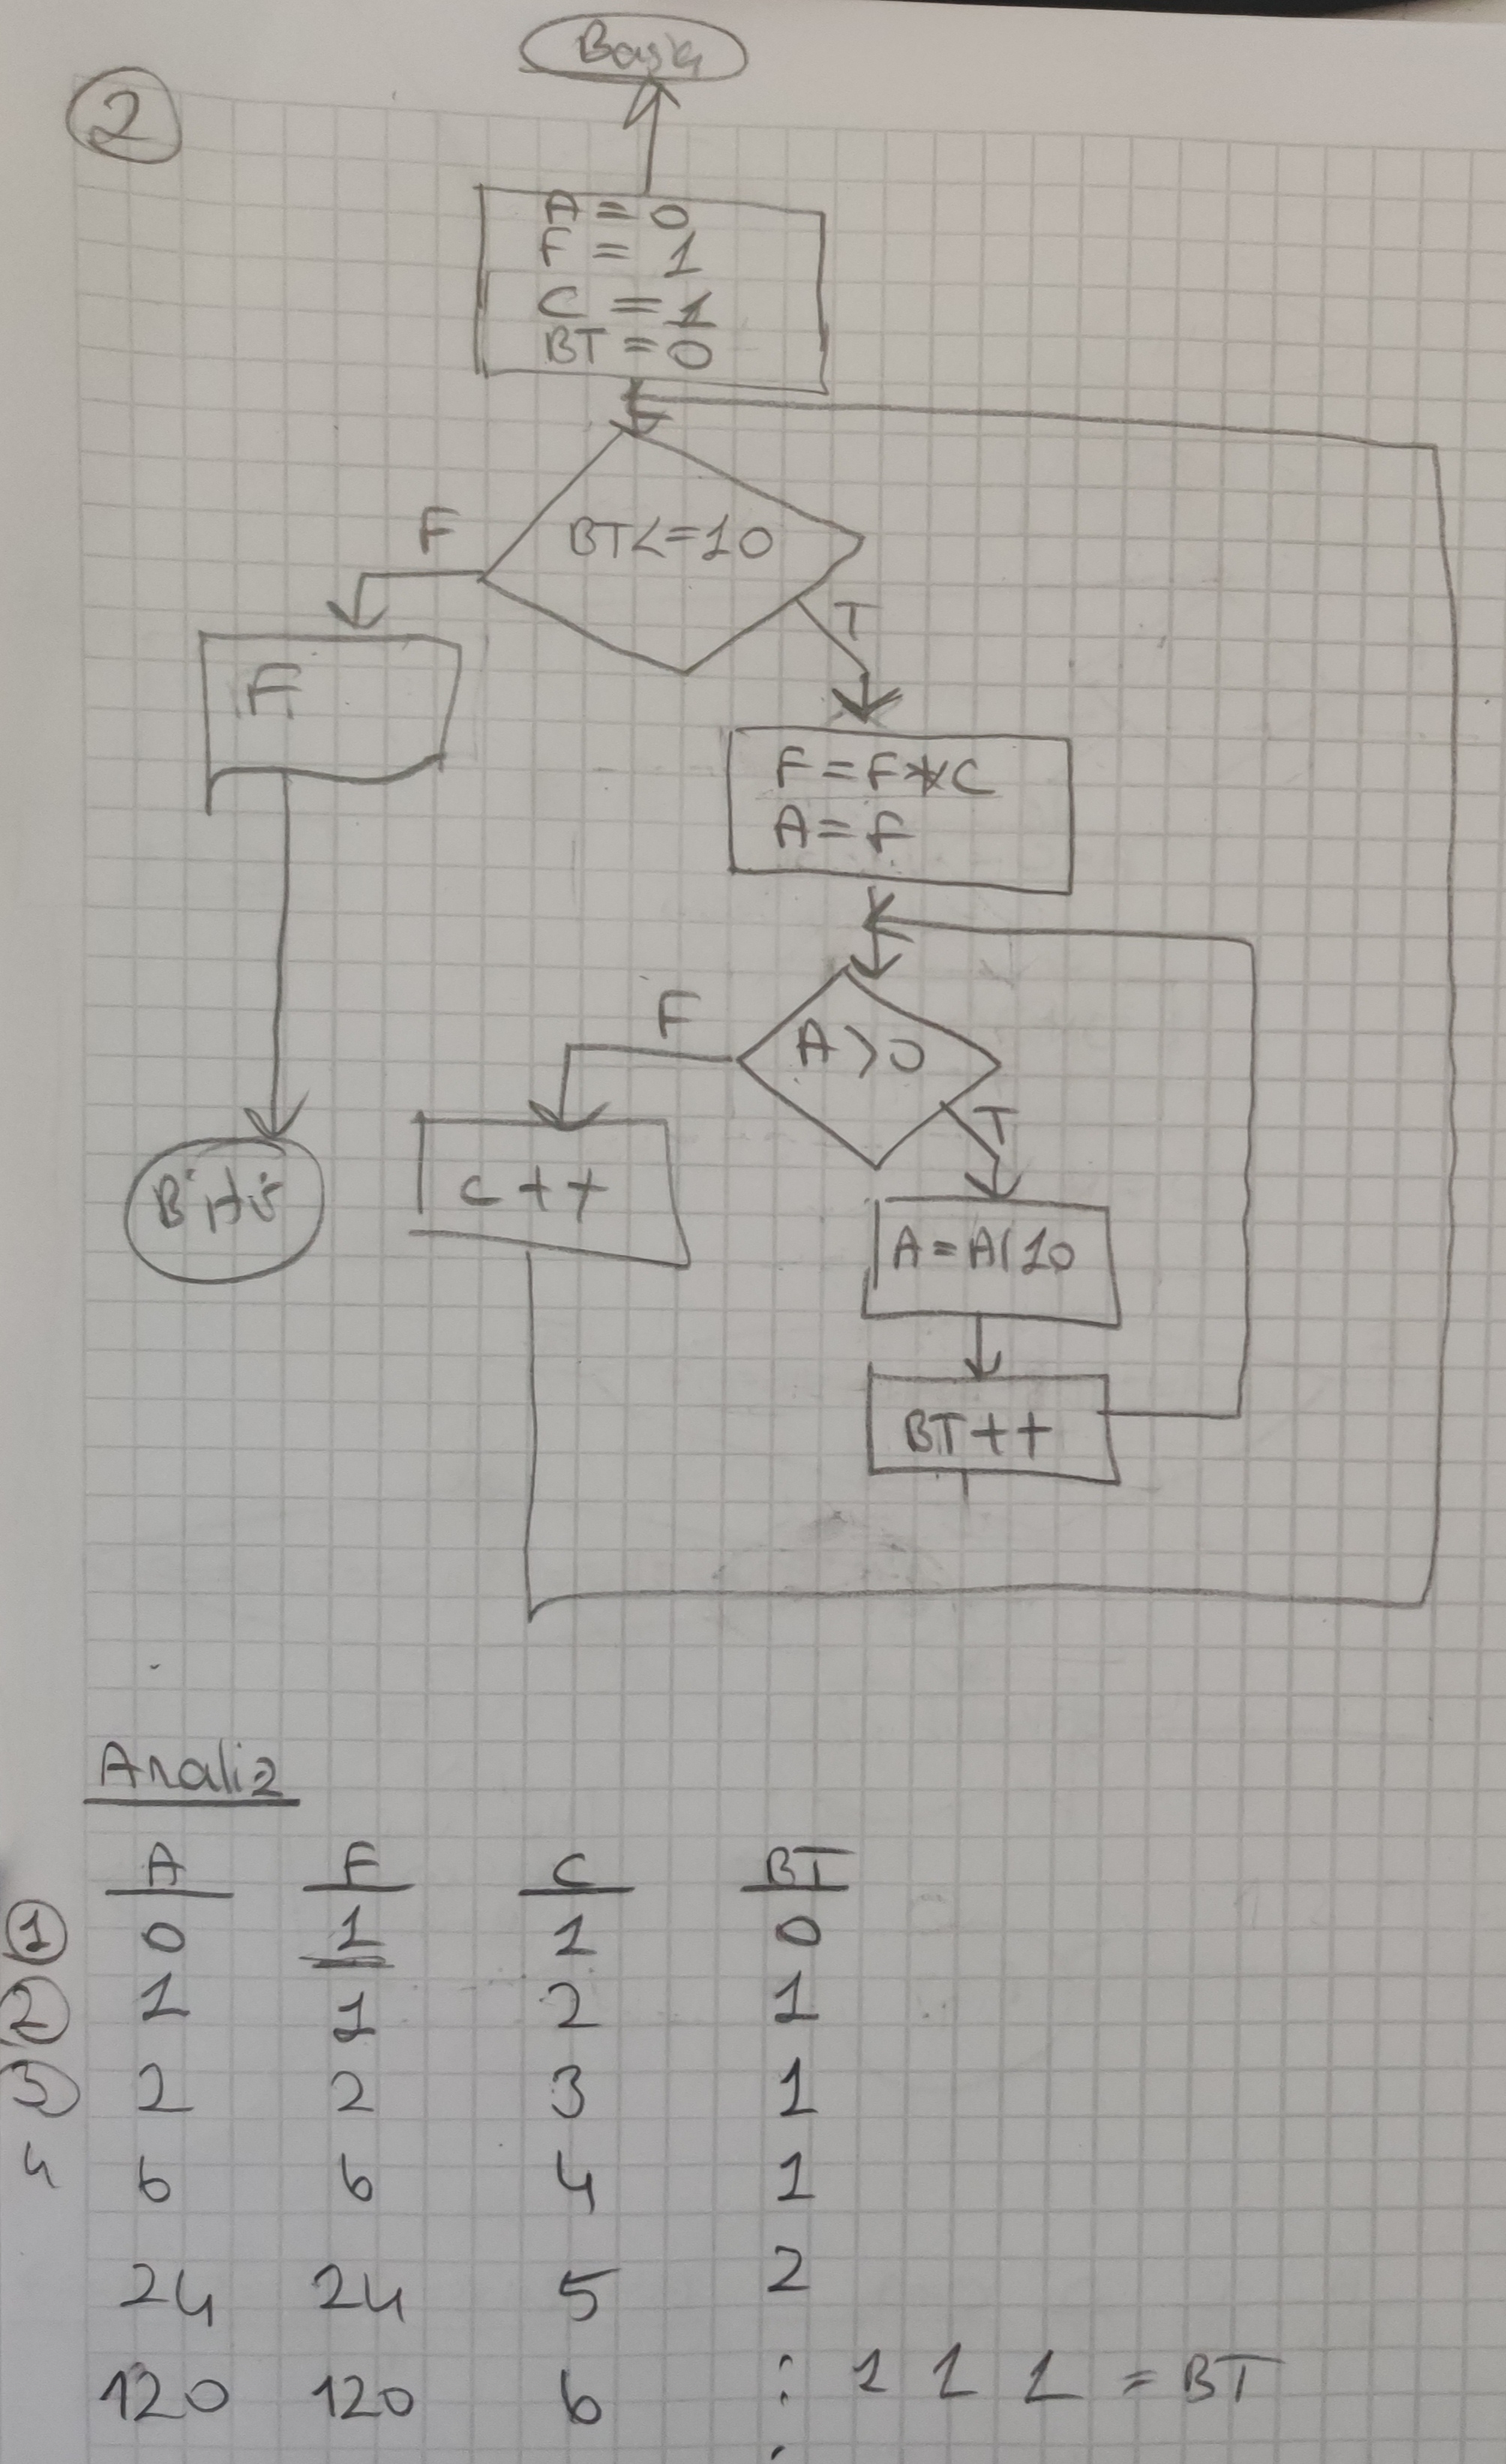 Başla
2
A = 0
F = 1
C = 1
BT = 0
BT<=10
F
T
F
F=F*C
A=F
A>0
F
T
Bitti
C++
A=A/10
BT++
Analiz
A F C BT
1 0 1 1 0
2 1 1 2 1
3 2 2 3 1
4 6 6 4 1
24 24 5 2
120 120 6 : 1 1 1 = BT